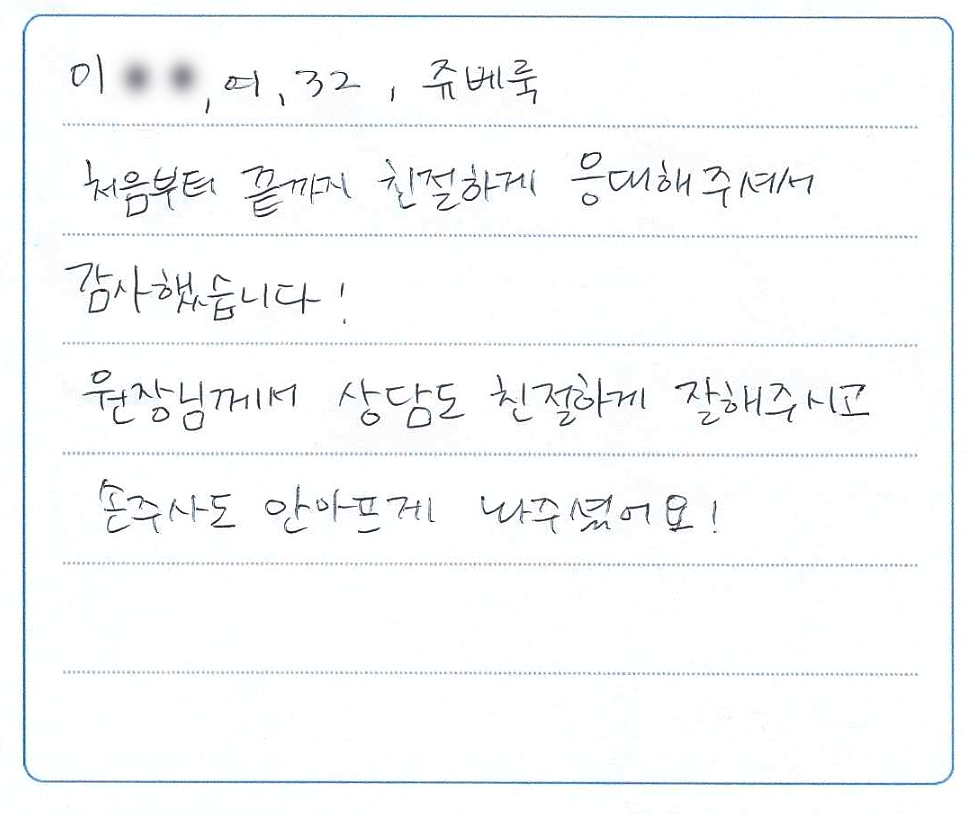 이 , 여, 32, 쥬베룩
처음부터 끝까지 친절하게 응대해주셔서
감사했습니다!
원장님께서 상담도 친절하게 잘해주시고
손주사도 안아프게 놔주셨어요!